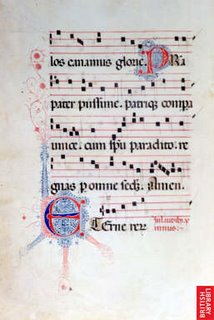 los canamus glorie. PRa
pater piissime. patriq; compa
unice. cum spu paraclito. re
gnas p omne secl̃. Amen.
ETerne rex
BRITISH
LIBRARY